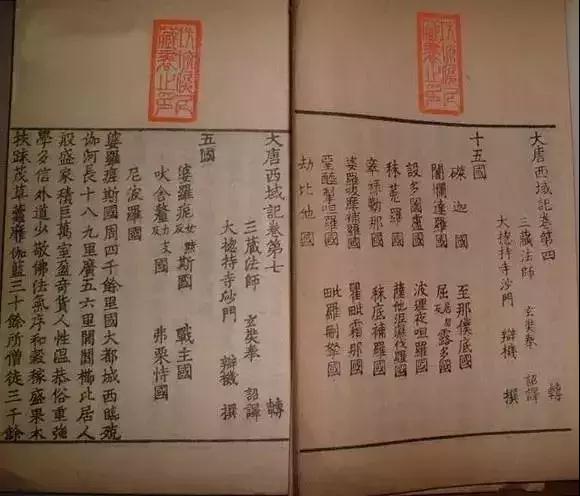 大唐西域記卷第四
三藏法師 玄奘奉 詔譯 轉
大揔持寺沙門 辯機 撰
十五國
磔迦國 至那僕底國
闍爛達羅國 屈居勿露多國
設多圖盧國 波理夜呾羅國
秣菟羅國 薩他泥濕伐羅國
窣祿勤那國 秣底補羅國
婆羅吸摩補羅國 瞿毗霜那國
堊醯掣呾羅國 毗羅刪拏國
劫比他國
大唐西域記卷第七
三藏法師 玄奘奉 詔譯 轉
大揔持寺沙門 辯機 撰
五國
婆羅痆女黠斯國 戰主國
吠舍釐力支反國 弗栗恃國
尼波羅國
婆羅痆斯國周四千餘里國大都城西臨殑
伽河長十八九里廣五六里閭閻櫛比居人
殷盛家積巨萬室盈奇貨人性溫恭俗重強
學多信外道少敬佛法氣序和穀稼盛果木
扶踈茂草靃靡伽藍三十餘所僧徒三千餘